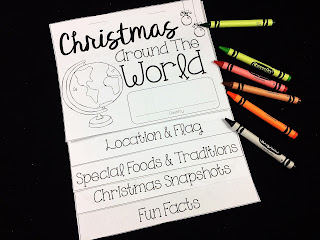 Christmas
Around The
World
Country
Location & Flag
Special Foods & Traditions
Christmas Snapshots
Fun Facts